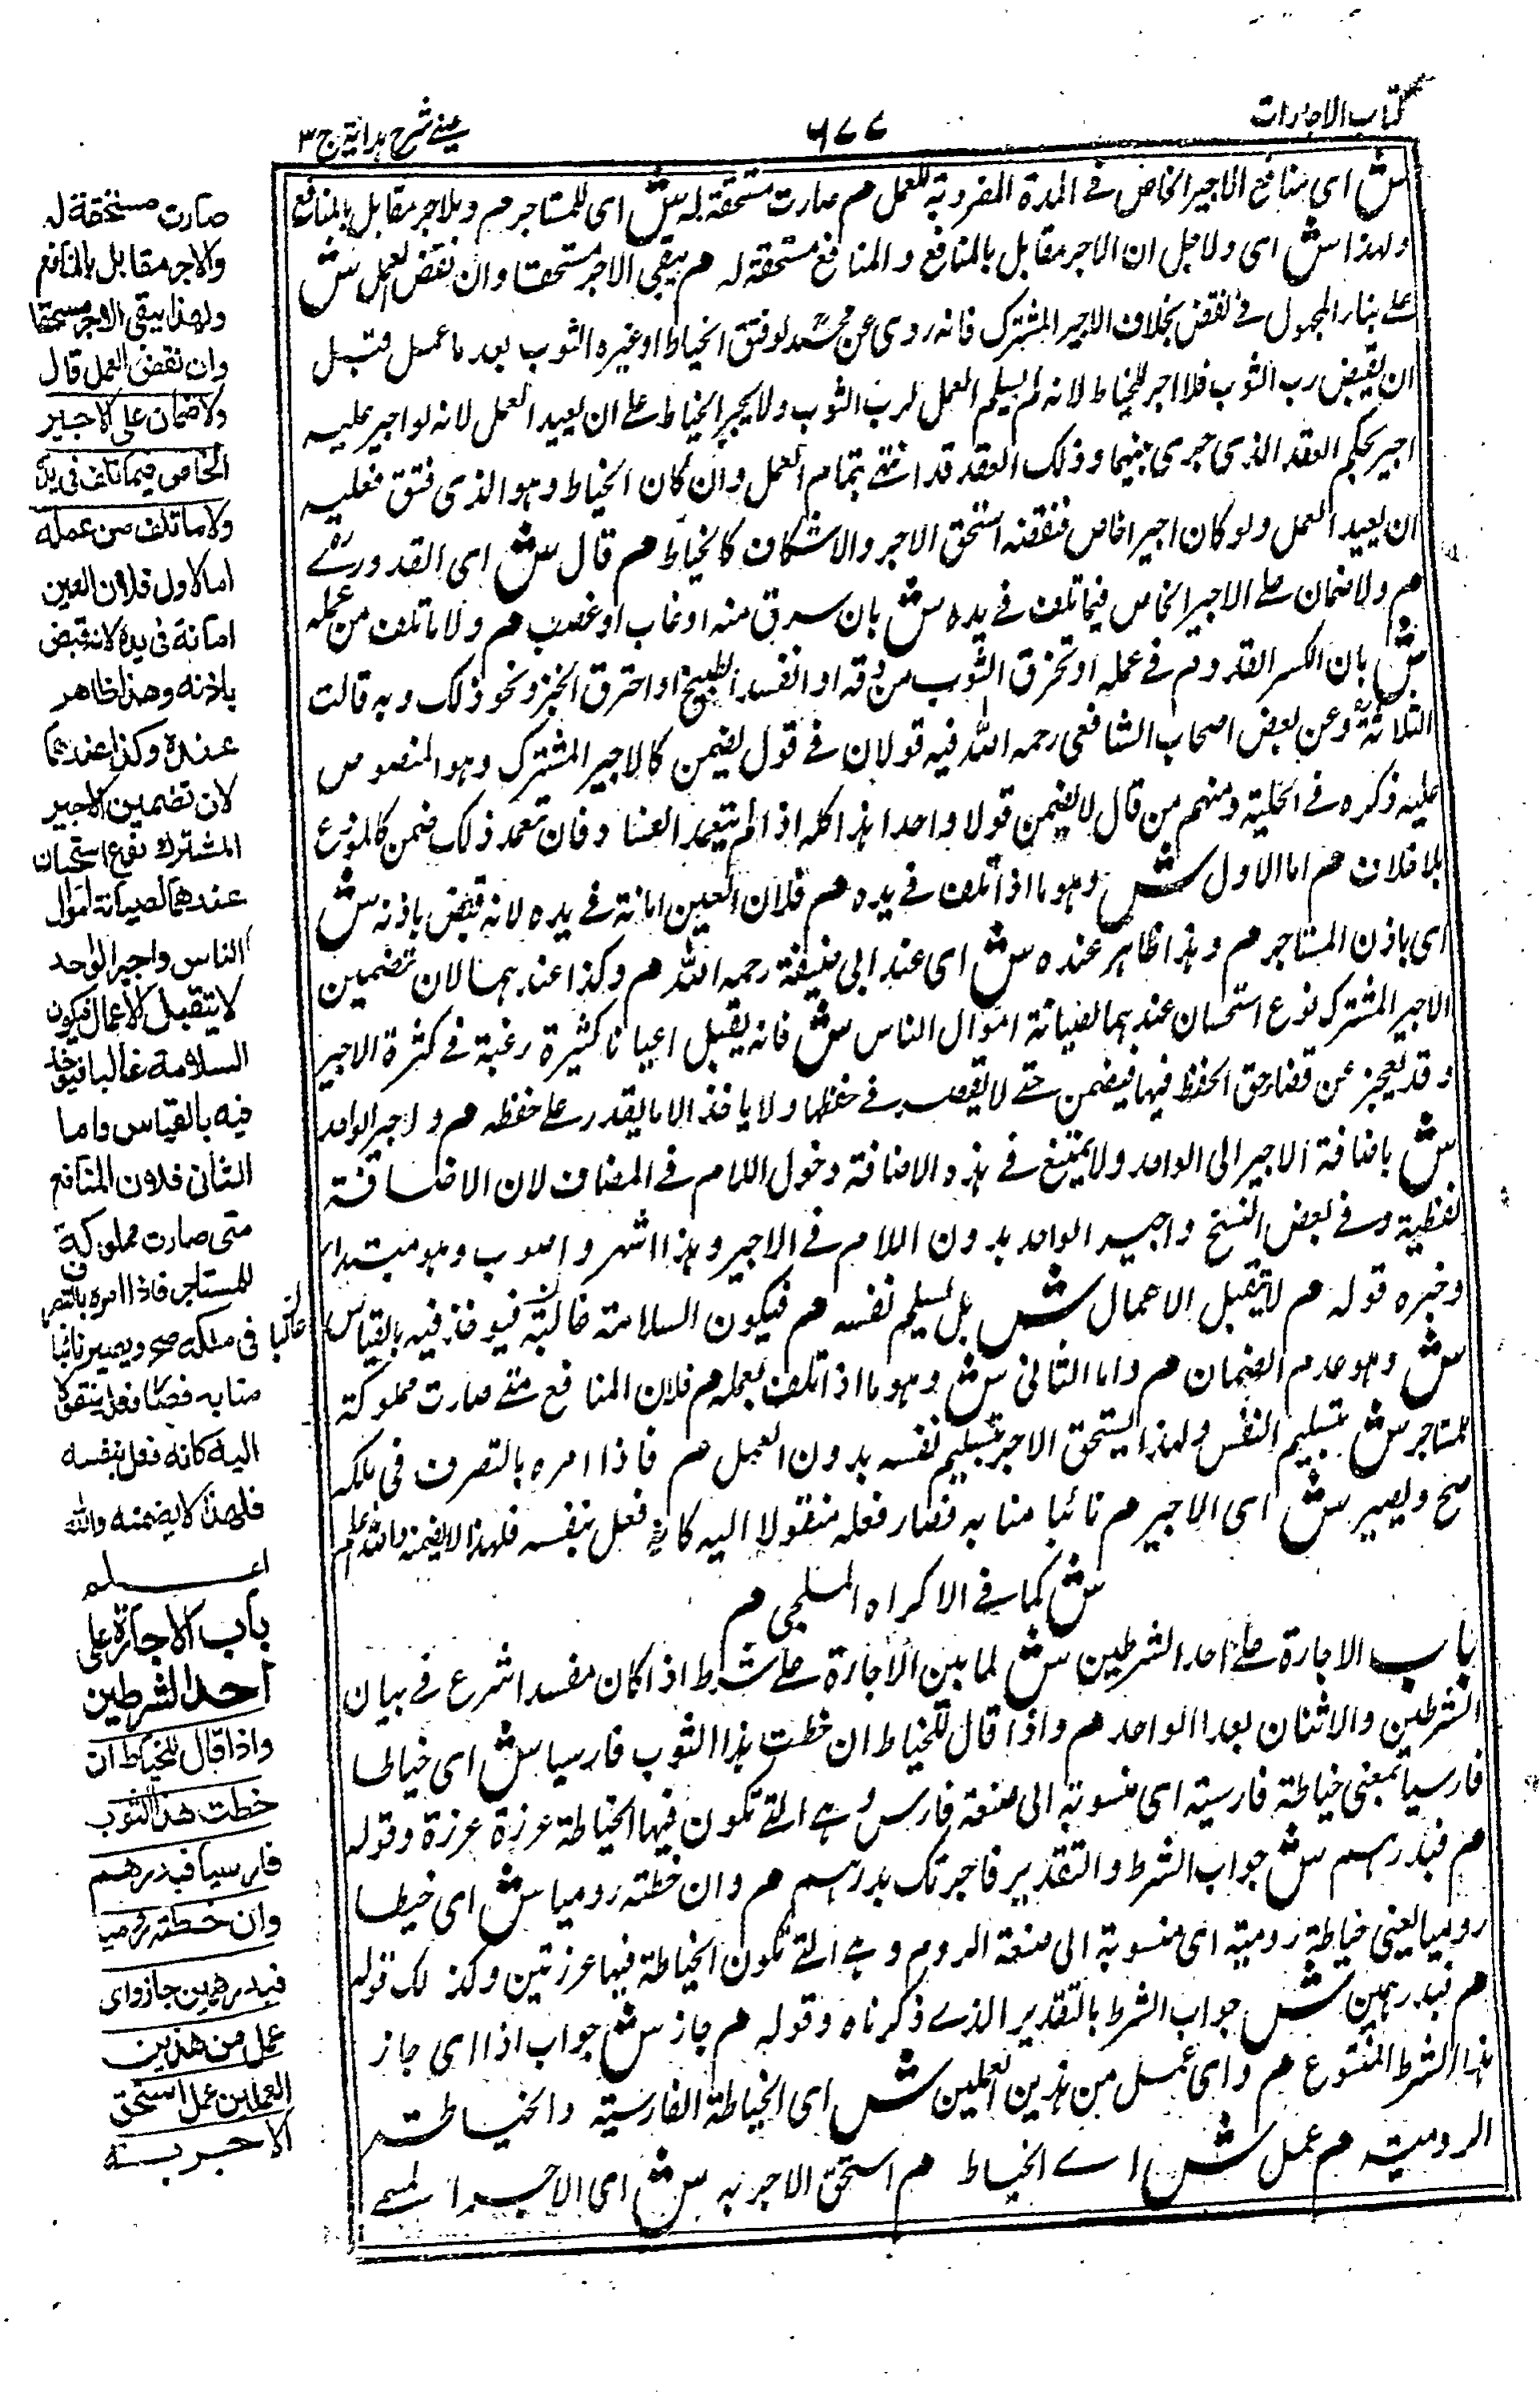 كتاب الاجارات
٦٧٧
عيني شرح هداية ج ٣
ش اى منافع الاجير الخاص فى المدة المضروبة للعمل م صارت مستحقة له ش اى للمستاجر م والاجر مقابل بالمنافع
ولهذا ش اى ولاجل ان الاجر مقابل بالمنافع والمنافع مستحقة له م يبقى الاجر مستحقا وان نقض العمل ش
على بناء المجهول فى نقض بخلاف الاجير المشترك فانه روى عن محمد لو فتق الخياط او غيره الثوب بعد ما عمل قبل
ان يقبض رب الثوب فلا اجر للخياط لانه لم يسلم العمل لرب الثوب ولا يجبر الخياط على ان يعيد العمل لانه لو اجبر عليه
اجبر بحكم العقد الذى جرى بينهما وذلك العقد قد انتهى بتمام العمل وان كان الخياط وهو الذى فتق فعليه
ان يعيد العمل ولو كان اجيرا خاص فنقضه استحق الاجر والاسكاف كالخياط م قال ش اى القدورى
م ولا ضمان على الاجير الخاص فيما تلف فى يده ش بان سرق منه او غاب او غصب م ولا ما تلف من عمله
ش بان انكسر القدوم فى عمله او تخرق الثوب من دقه او انفسد الطبيخ او احترق الخبز ونحو ذلك وبه قالت
الثلاثة وعن بعض اصحاب الشافعى رحمه الله فيه قولان فى قول يضمن كالاجير المشترك وهو المنصوص
عليه ذكره فى الحلية ومنهم من قال لا يضمن قولا واحدا هذا كله اذا لم يتعمد الفساد فان تعمد ذلك ضمن كالمودع
بلا خلاف م اما الاول ش وهو ما اذا تلف فى يده م فلان العين امانة فى يده لانه قبض باذنه ش
اى باذن المستاجر م وهذا ظاهر عنده ش اى عند ابى حنيفة رحمه الله م وكذا عندهما لان تضمين
الاجير المشترك نوع استحسان عندهما لصيانة اموال الناس ش فانه يقبل اعيانا كثيرة رغبة فى كثرة الاجير
وقد يعجز عن قضاء حق الحفظ فيها فيضمن حتى لا يقصر فى حفظها ولا ياخذ الا ما يقدر على حفظه م واجير الواحد
ش باضافة الاجير الى الواحد ولا يمتنع فى هذه الاضافة دخول اللام فى المضاف لان الاضافة
لفظية وفى بعض النسخ واجير الواحد بدون اللام فى الاجير وهذا اشهر واصوب وهو مبتداء
وخبره قوله م لا يتقبل الاعمال ش بل يسلم نفسه م فيكون السلامة غالبة فيوخذ فيه بالقياس
ش وهو عدم الضمان م واما الثانى ش وهو ما اذا تلف بعمله م فلان المنافع متى صارت مملوكة
للمستاجر ش بتسليم النفس ولهذا يستحق الاجر بتسليم نفسه بدون العمل م فاذا امره بالتصرف فى ملكه
صح ويصير ش اى الاجير م نائبا منابه فصار فعله منقولا اليه كانه فعل بنفسه فلهذا لا يضمنه والله اعلم
ش كما فى الاكراه الملجى م
باب الاجارة على احد الشرطين ش لما بين الاجارة على شرط اذا كان مفسدا شرع فى بيان
الشرطين والاثنان بعد الواحد م واذا قال للخياط ان خطت هذا الثوب فارسيا ش اى خياطا
فارسيا بمعنى خياطة فارسية اى منسوبة الى صنعة فارس وهى التى تكون فيها الخياطة غرزة غرزة وقوله
م فبدرهم ش جواب الشرط والتقدير فاجرتك بدرهم م وان خطته روميا ش اى خيطا
روميا يعنى خياطة رومية اى منسوبة الى صنعة الروم وهى التى تكون الخياطة فيها غرزتين وكذلك قوله
م فبدرهمين ش جواب الشرط بالتقدير الذى ذكرناه وقوله م جاز ش جواب اذا اى جاز
هذا الشرط المتنوع م واى عمل من هذين العملين ش اى الخياطة الفارسية والخياطة
الرومية م عمل ش اى الخياط م استحق الاجر به ش اى الاجر المسمى
صارت مستحقة له
والاجر مقابل بالمنافع
ولهذا يبقى الاجر مستحقا
وان نقض العمل قال
ولا ضمان على الاجير
الخاص فيما تلف فى يده
ولا ما تلف من عمله
اما الاول فلان العين
امانة فى يده لانه قبض
باذنه وهذا ظاهر
عنده وكذا عندهما
لان تضمين الاجير
المشترك نوع استحسان
عندهما لصيانة اموال
الناس واجير الواحد
لا يتقبل الاعمال فيكون
السلامة غالبا فيوخذ
فيه بالقياس واما
الثانى فلان المنافع
متى صارت مملوكة
للمستاجر فاذا امره بالتصرف
فى ملكه صح ويصير نائبا
منابه فصار فعله منقولا
اليه كانه فعل بنفسه
فلهذا لا يضمنه والله
اعلم
باب الاجارة على
احد الشرطين
واذا قال للخياط ان
خطت هذا الثوب
فارسيا فبدرهم
وان خطته روميا
فبدرهمين جاز واى
عمل من هذين
العملين عمل استحق
الاجر به